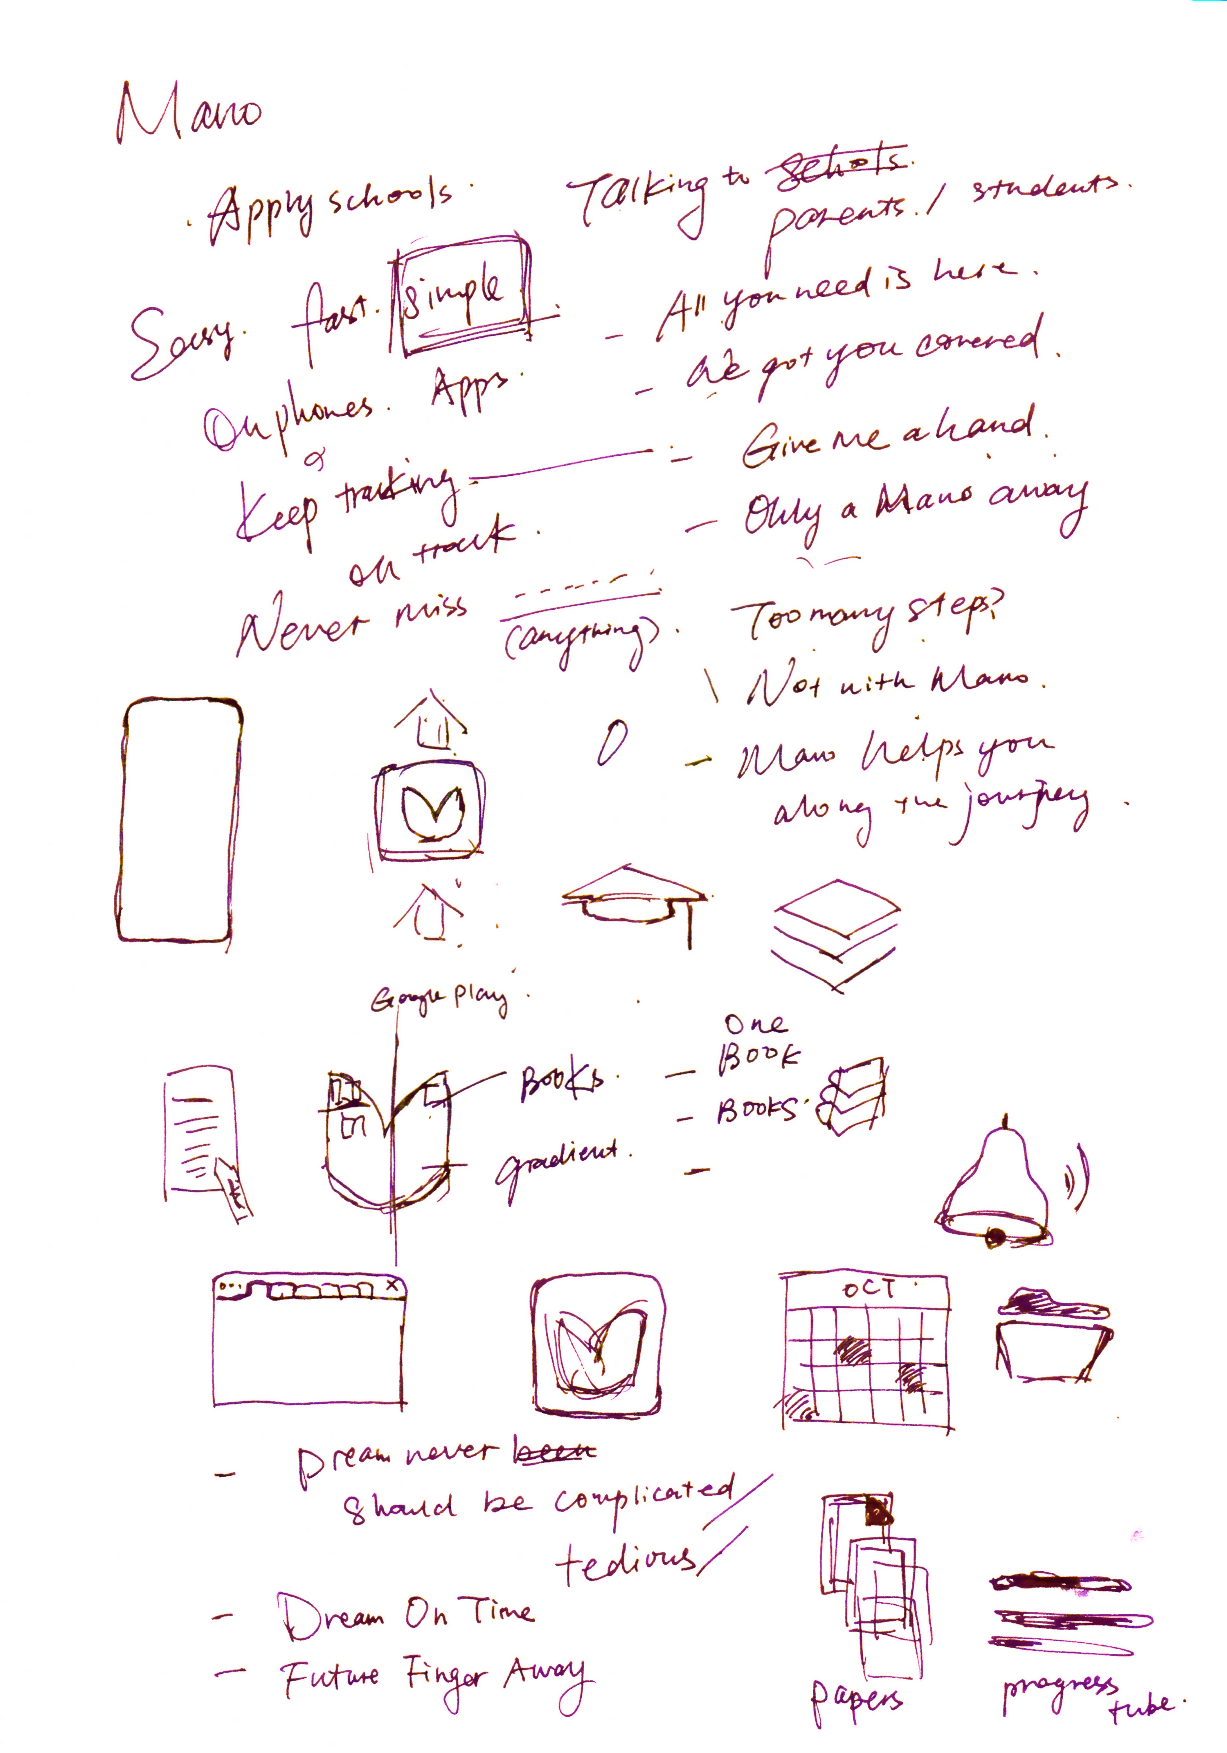 Mano
. Apply schools.
Talking to schools.
parents. / students.
Easy. fast. simple
On phones. Apps.
&
Keep tracking
on track.
Never miss
(anything).
- All you need is here.
- We got you covered.
- Give me a hand.
- Only a Mano away
Too many steps?
\ Not with Mano.
- Mano helps you
along the journey.
Google play.
Books.
gradient.
- One
Book
- Books.
OCT
- Dream never been
should be complicated/
tedious/
- Dream On Time
- Future Finger Away
papers
progress
tube.